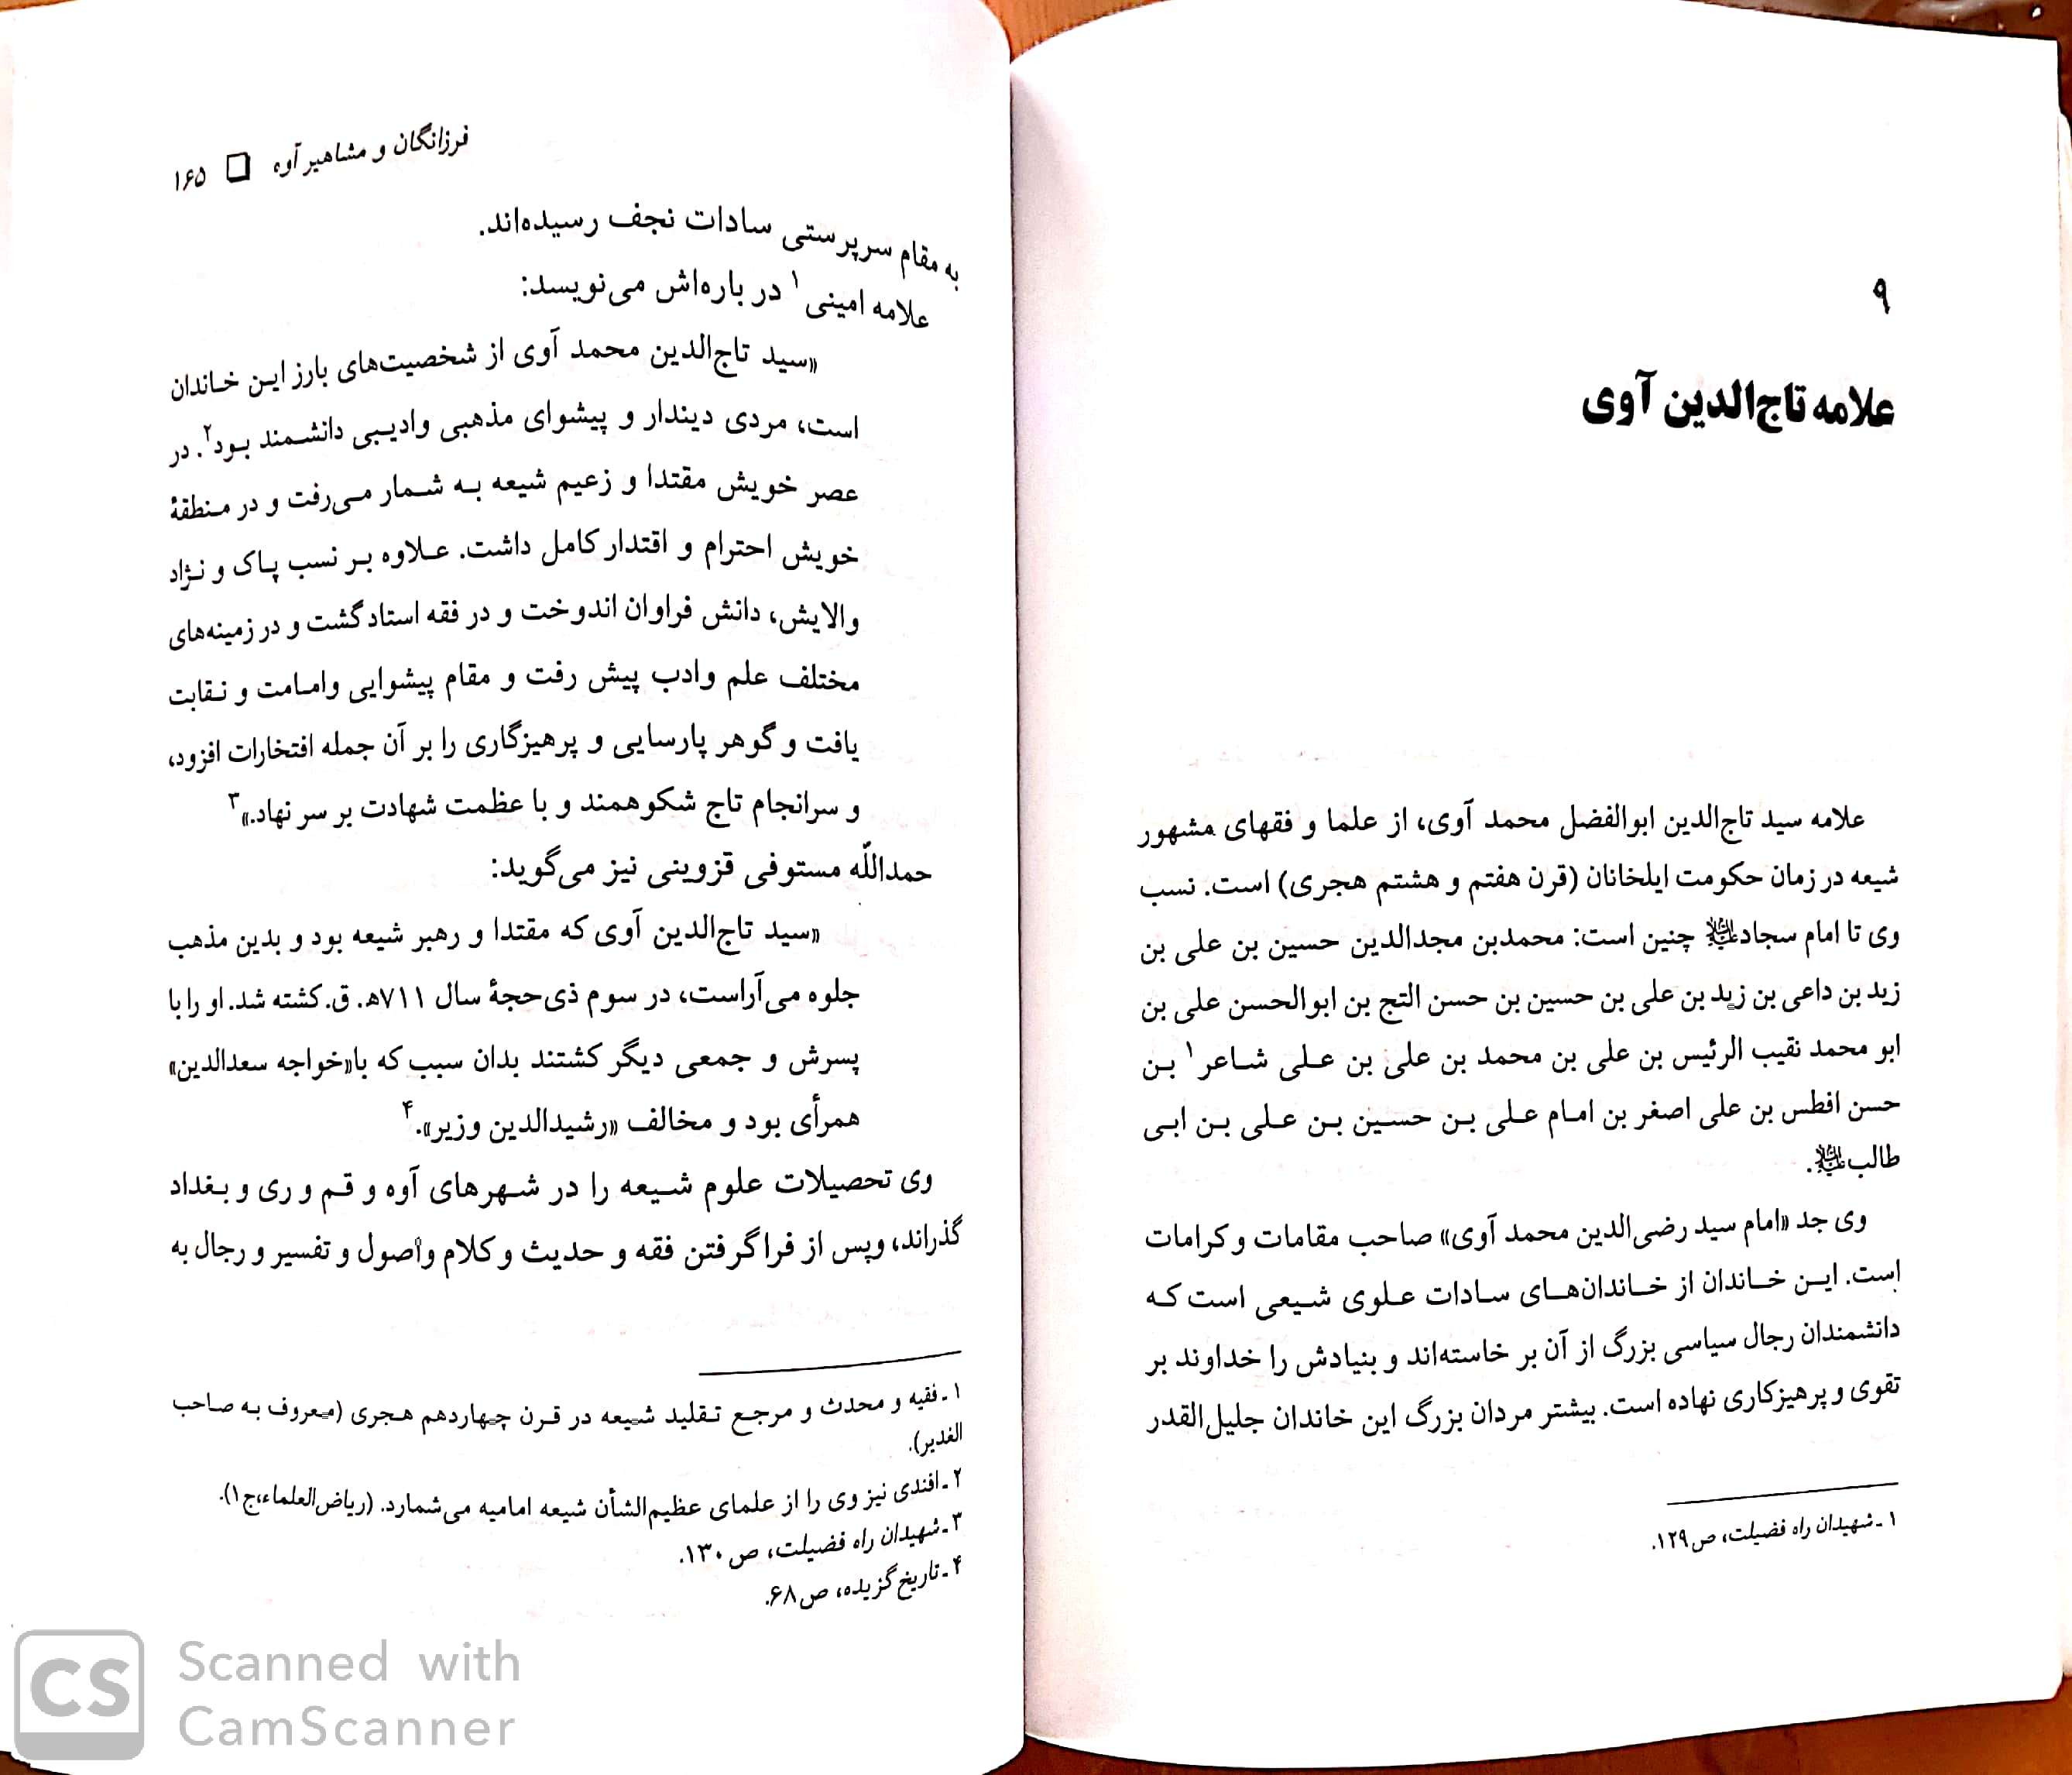 ۹
علامه تاج‌الدین آوی
علامه سید تاج‌الدین ابوالفضل محمد آوی، از علما و فقهای مشهور
شیعه در زمان حکومت ایلخانان (قرن هفتم و هشتم هجری) است. نسب
وی تا امام سجاد علیه‌السلام چنین است: محمدبن مجدالدین حسین بن علی بن
زید بن داعی بن زید بن علی بن حسین بن حسن التج بن ابوالحسن علی بن
ابو محمد نقیب الرئیس بن علی بن محمد بن علی بن علی شاعر۱ بن
حسن افطس بن علی اصغر بن امام علی بن حسین بن علی بن ابی
طالب علیه‌السلام.
وی جد «امام سید رضی‌الدین محمد آوی» صاحب مقامات و کرامات
است. این خاندان از خاندان‌های سادات علوی شیعی است که
دانشمندان رجال سیاسی بزرگ از آن بر خاسته‌اند و بنیادش را خداوند بر
تقوی و پرهیزکاری نهاده است. بیشتر مردان بزرگ این خاندان جلیل‌القدر
۱ـ شهیدان راه فضیلت، ص۱۲۹.
فرزانگان و مشاهیر آوه □ ۱۶۵
به مقام سرپرستی سادات نجف رسیده‌اند.
علامه امینی۱ در باره‌اش می‌نویسد:
«سید تاج‌الدین محمد آوی از شخصیت‌های بارز این خاندان
است، مردی دیندار و پیشوای مذهبی وادیبی دانشمند بود۲. در
عصر خویش مقتدا و زعیم شیعه به شمار می‌رفت و در منطقهٔ
خویش احترام و اقتدار کامل داشت. علاوه بر نسب پاک و نژاد
والایش، دانش فراوان اندوخت و در فقه استاد گشت و در زمینه‌های
مختلف علم وادب پیش رفت و مقام پیشوایی وامامت و نقابت
یافت و گوهر پارسایی و پرهیزگاری را بر آن جمله افتخارات افزود،
و سرانجام تاج شکوهمند و با عظمت شهادت بر سر نهاد.»۳
حمدالله مستوفی قزوینی نیز می‌گوید:
«سید تاج‌الدین آوی که مقتدا و رهبر شیعه بود و بدین مذهب
جلوه می‌آراست، در سوم ذی‌حجهٔ سال ۷۱۱ه‍. ق. کشته شد. او را با
پسرش و جمعی دیگر کشتند بدان سبب که با«خواجه سعدالدین»
همرأی بود و مخالف «رشیدالدین وزیر».۴
وی تحصیلات علوم شیعه را در شهرهای آوه و قم و ری و بغداد
گذراند، وپس از فرا گرفتن فقه و حدیث و کلام واُصول و تفسیر و رجال به
۱ـ فقیه و محدث و مرجع تقلید شیعه در قرن چهاردهم هجری (معروف به صاحب
الغدیر).
۲ـ افندی نیز وی را از علمای عظیم‌الشأن شیعه امامیه می‌شمارد. (ریاض‌العلماء،ج۱).
۳ـ شهیدان راه فضیلت، ص۱۳۰.
۴ـ تاریخ گزیده، ص۶۸.
CS Scanned with
CamScanner